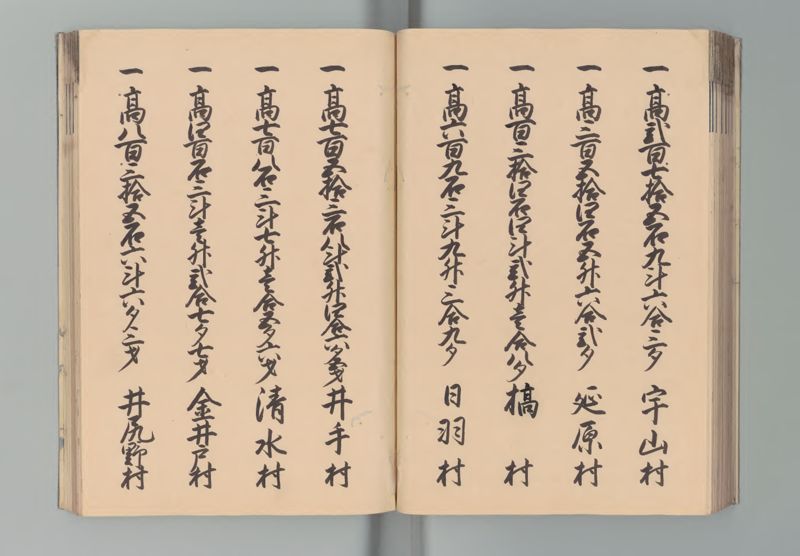 一 高弐百七拾五石九斗六合三夕 宇山村
一 高三百五拾四石五升六合弐夕 延原村
一 高百三拾四石四斗弐升壱合八夕 槁 村
一 高六百九石三斗九升三合九夕 日羽村
一 高七百五拾三石八斗弐升四合六夕 井手村
一 高七百八石三斗七升壱合五夕六才 清水村
一 高四百石三斗壱升弐合七夕七才 金井戸村
一 高八百三拾五石六斗六夕 井尻野村